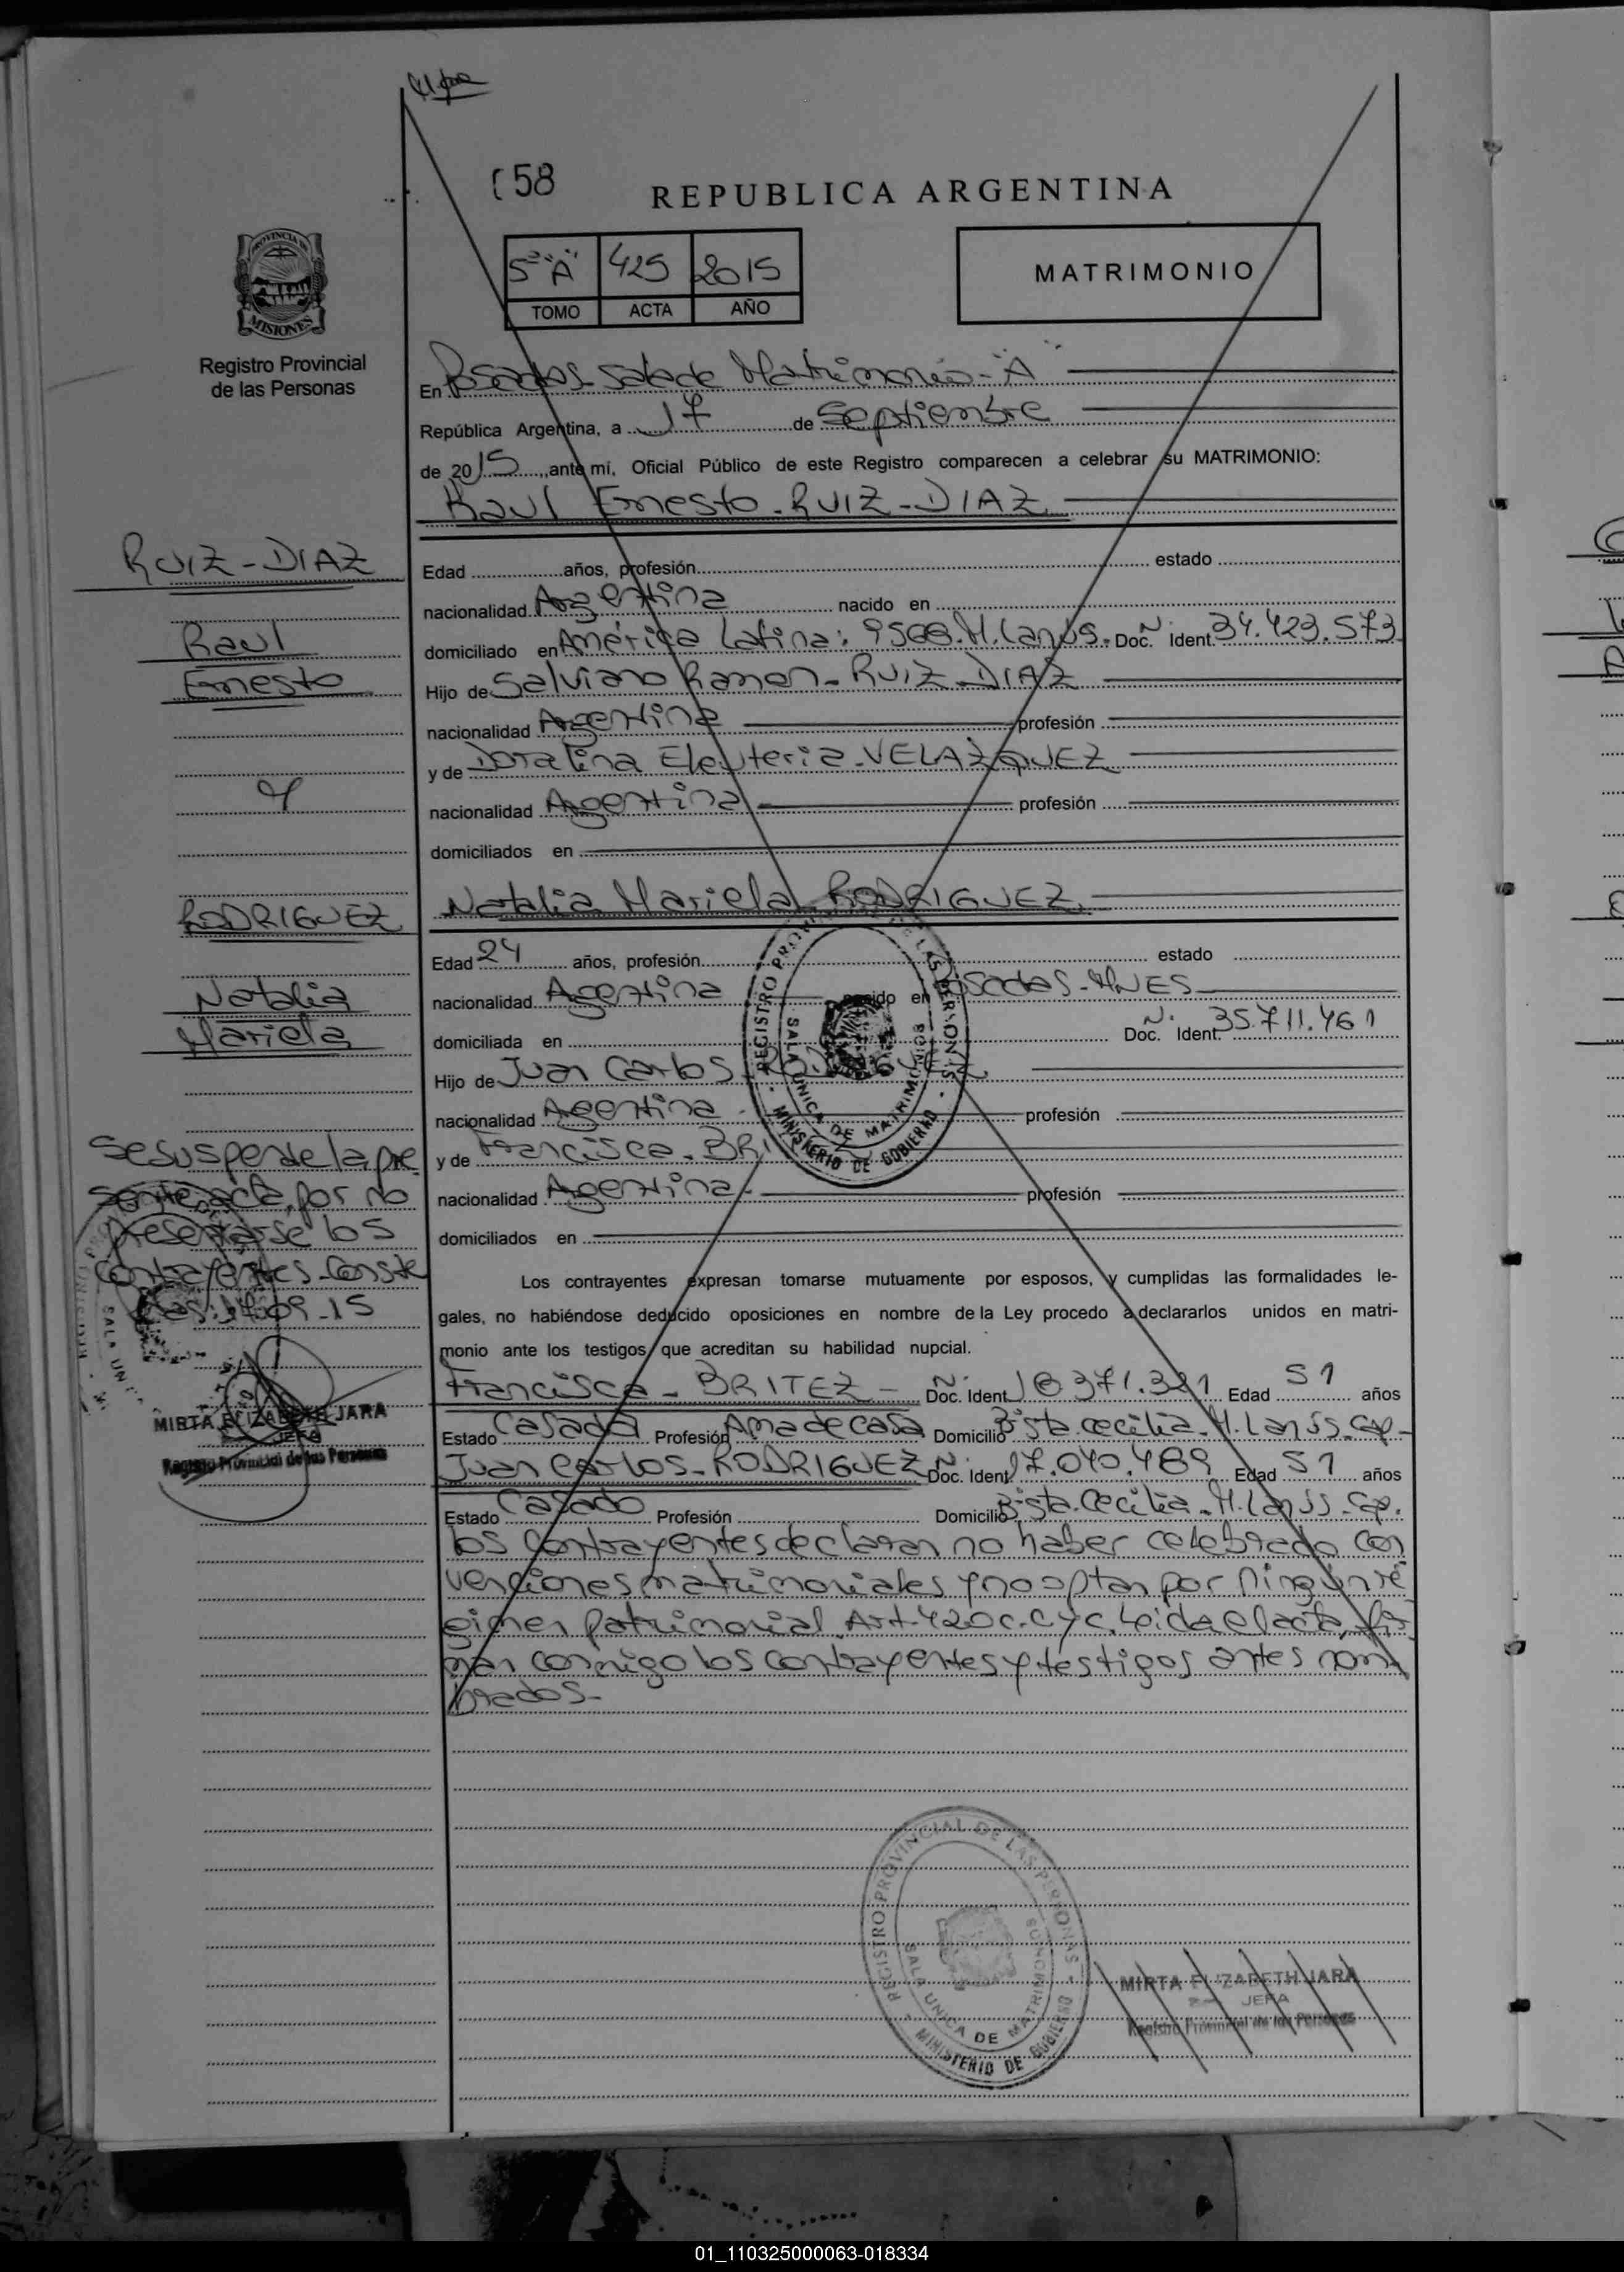 158
REPUBLICA ARGENTINA
5º "A" 425 2015
TOMO ACTA AÑO
MATRIMONIO
PROVINCIA DE
MISIONES
Registro Provincial
de las Personas
En Posadas Sala de Matrimonio - "A"
República Argentina, a 17 de Septiembre
de 2015, ante mí, Oficial Público de este Registro comparecen a celebrar su MATRIMONIO:
Raul Ernesto - RUIZ - DIAZ
RUIZ - DIAZ
Raul
Ernesto
y
RODRIGUEZ
Natalia
Mariela
Edad años, profesión estado
nacionalidad Argentina nacido en
domiciliado en América Latina: 9508. M. Lanús. Doc. Nº Ident. 34.423.573
Hijo de Salviano Ramon - RUIZ - DIAZ
nacionalidad Argentina profesión
y de Doralina Eleuteria - VELAZQUEZ
nacionalidad Argentina profesión
domiciliados en
Natalia Mariela RODRIGUEZ.
Edad 24 años, profesión estado
nacionalidad Argentina nacido en Posadas - MNES
domiciliada en Doc. Nº Ident. 35.711.461
Hijo de Juan Carlos - RODRIGUEZ.
nacionalidad Argentina - profesión
y de Francisca - BRI
nacionalidad Argentina - profesión
domiciliados en
REGISTRO PROVINCIAL DE LAS PERSONAS - MINISTERIO DE GOBIERNO
SALA UNICA DE MATRIMONIOS
Se suspende la pre
sente acta, por no
presentarse los
contrayentes. Conste
Pdas. 17-09-15
MIRTA ELIZABETH JARA
JEFA
Registro Provincial de las Personas
Los contrayentes expresan tomarse mutuamente por esposos, y cumplidas las formalidades le-
gales, no habiéndose deducido oposiciones en nombre de la Ley procedo a declararlos unidos en matri-
monio ante los testigos que acreditan su habilidad nupcial.
Francisca - BRITEZ - Doc. Nº Ident. 18.371.321 Edad 51 años
Estado Casada Profesión Ama de casa Domicilio Bº Sta. Cecilia - M. Lanús - Cap -
Juan Carlos - RODRIGUEZ Doc. Nº Ident. 17.040.489 Edad 51 años
Estado Casado Profesión Domicilio Bº Sta. Cecilia - M. Lanús - Cap.
los contrayentes declaran no haber celebrado con
venciones matrimoniales y no optan por ningun re
gimen patrimonial. Art. 420 C.C y C. Leida el acta, fir
man conmigo los contrayentes y testigos antes nom
brados -
REGISTRO PROVINCIAL DE LAS PERSONAS - MINISTERIO DE GOBIERNO
SALA UNICA DE MATRIMONIOS
MIRTA ELIZABETH JARA
JEFA
Registro Provincial de las Personas
01_110325000063-018334